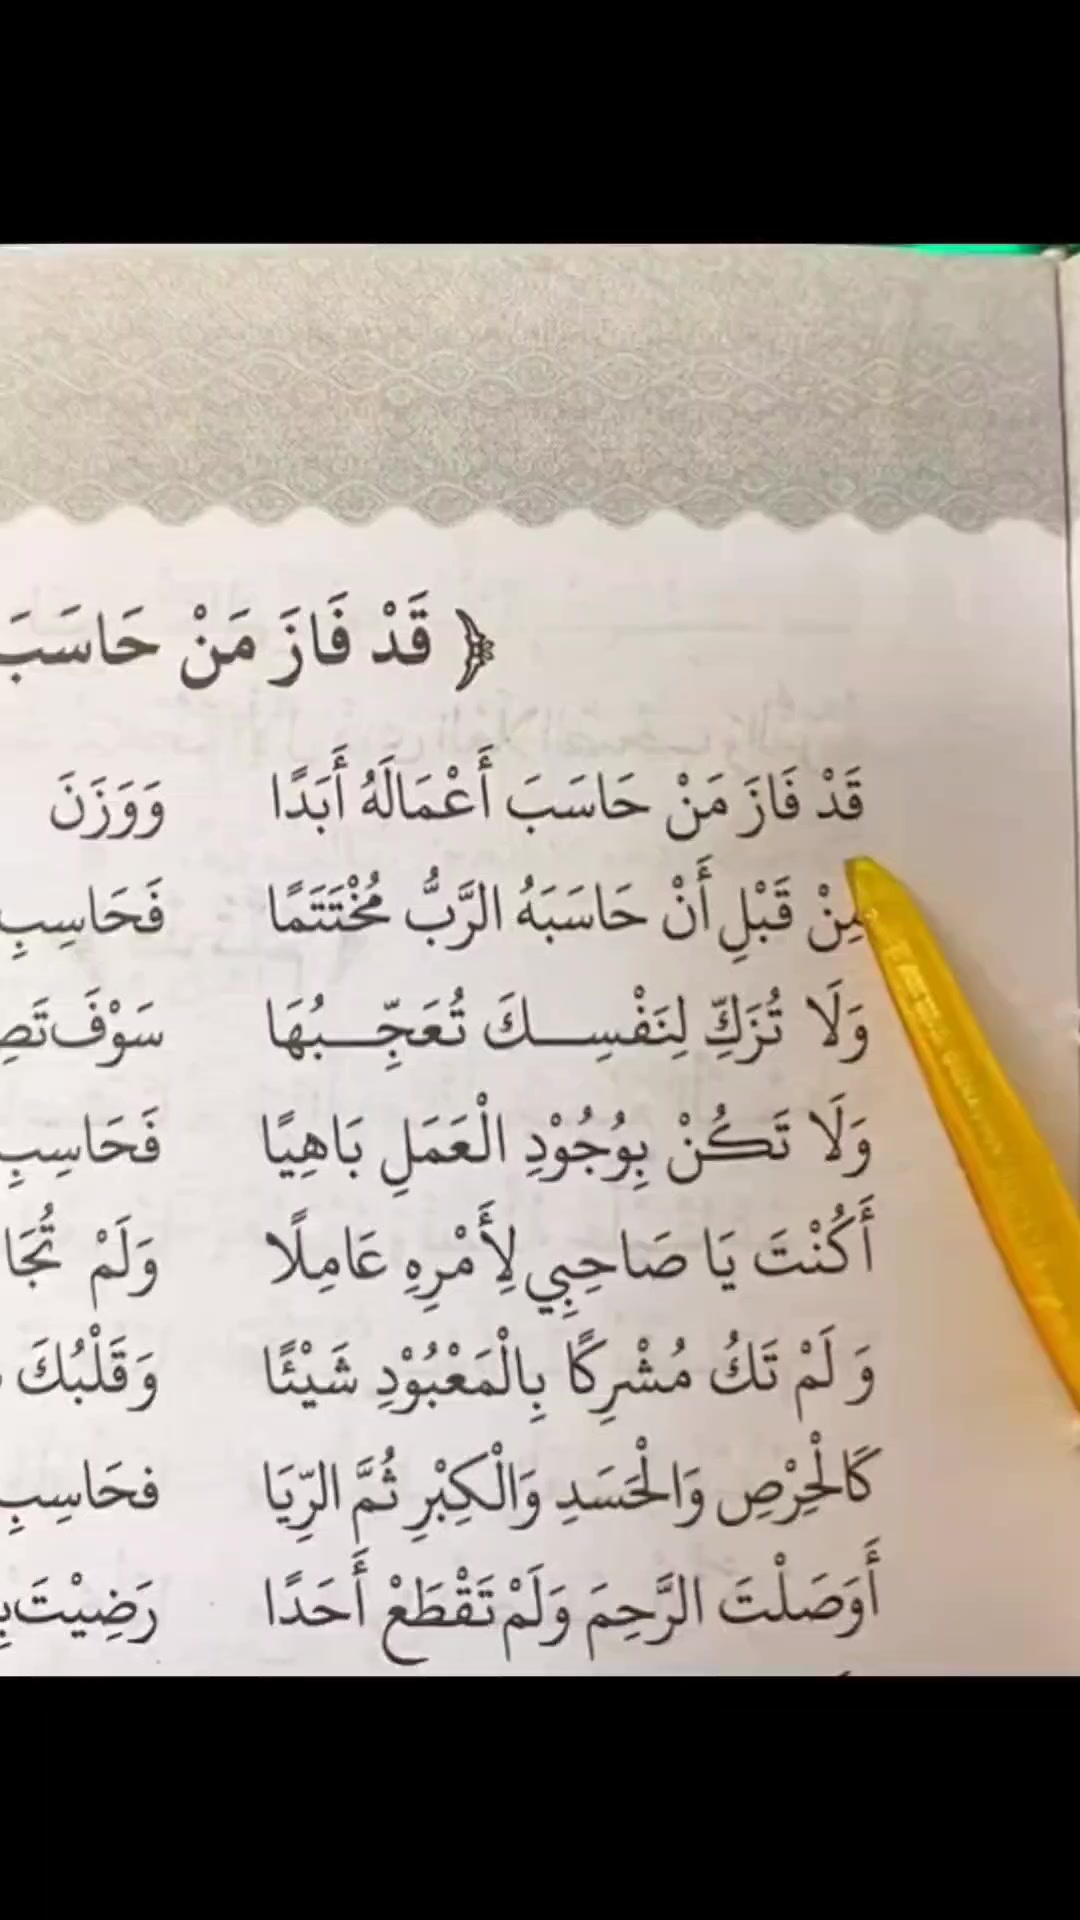 ﴿ قَدْ فَازَ مَنْ حَاسَبَ
قَدْ فَازَ مَنْ حَاسَبَ أَعْمَالَهُ أَبَدًا وَوَزَنَ
مِنْ قَبْلِ أَنْ حَاسَبَهُ الرَّبُّ مُخْتَتَمًا فَحَاسِبِ
وَلَا تُزَكِّ لِنَفْسِكَ تُعَجِّبُهَا سَوْفَ
وَلَا تَكُنْ بِوُجُوْدِ الْعَمَلِ بَاهِيًا فَحَاسِبِ
أَكُنْتَ يَا صَاحِبِي لِأَمْرِهِ عَامِلًا وَلَمْ
وَ لَمْ تَكُ مُشْرِكًا بِالْمَعْبُوْدِ شَيْئًا وَقَلْبُكَ
كَالْحِرْصِ وَالْحَسَدِ وَالْكِبْرِ ثُمَّ الرِّيَا فحَاسِبِ
أَوَصَلْتَ الرَّحِمَ وَلَمْ تَقْطَعْ أَحَدًا رَضِيْتَ